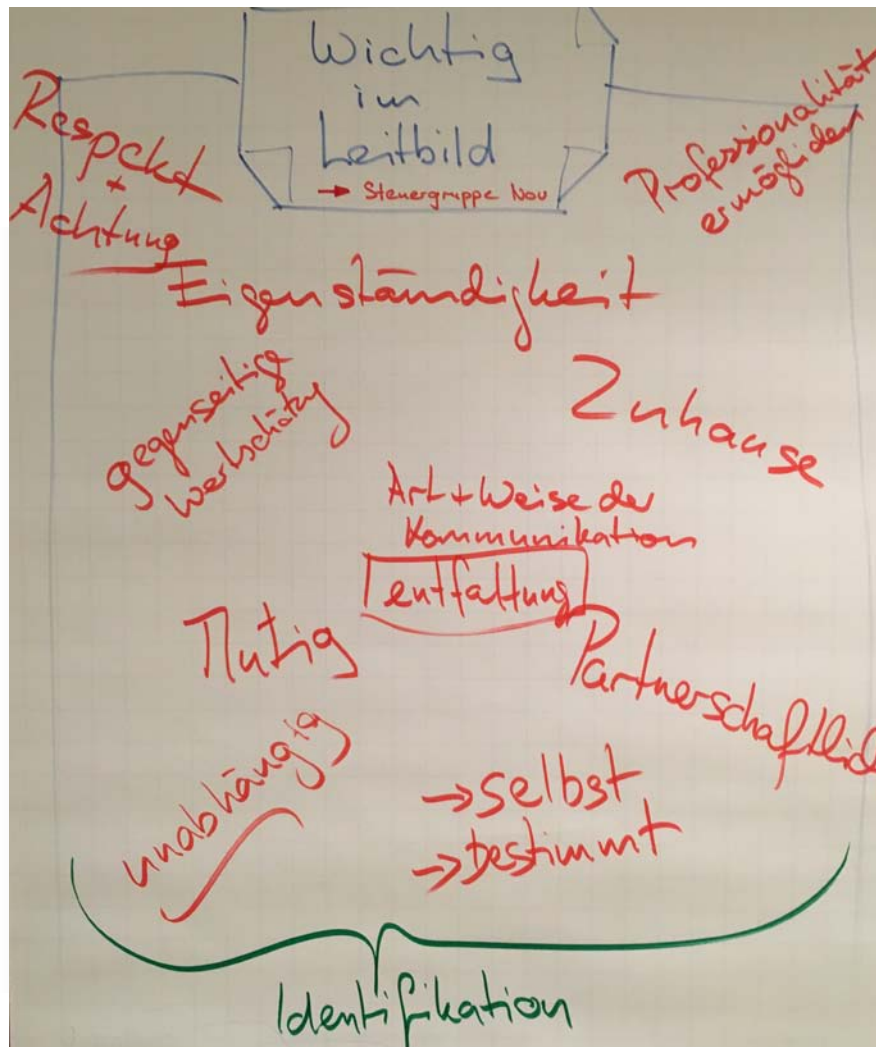 Wichtig
im
Leitbild
→ Steuergruppe Nov
Respekt
+
Achtung
Professionalität
ermöglichen
Eigenständigkeit
gegenseitige
Wertschätzung
Zuhause
Art + Weise der
Kommunikation
entfaltung
Mutig
Partnerschaftlich
unabhängig
→ selbst
→ bestimmt
Identifikation